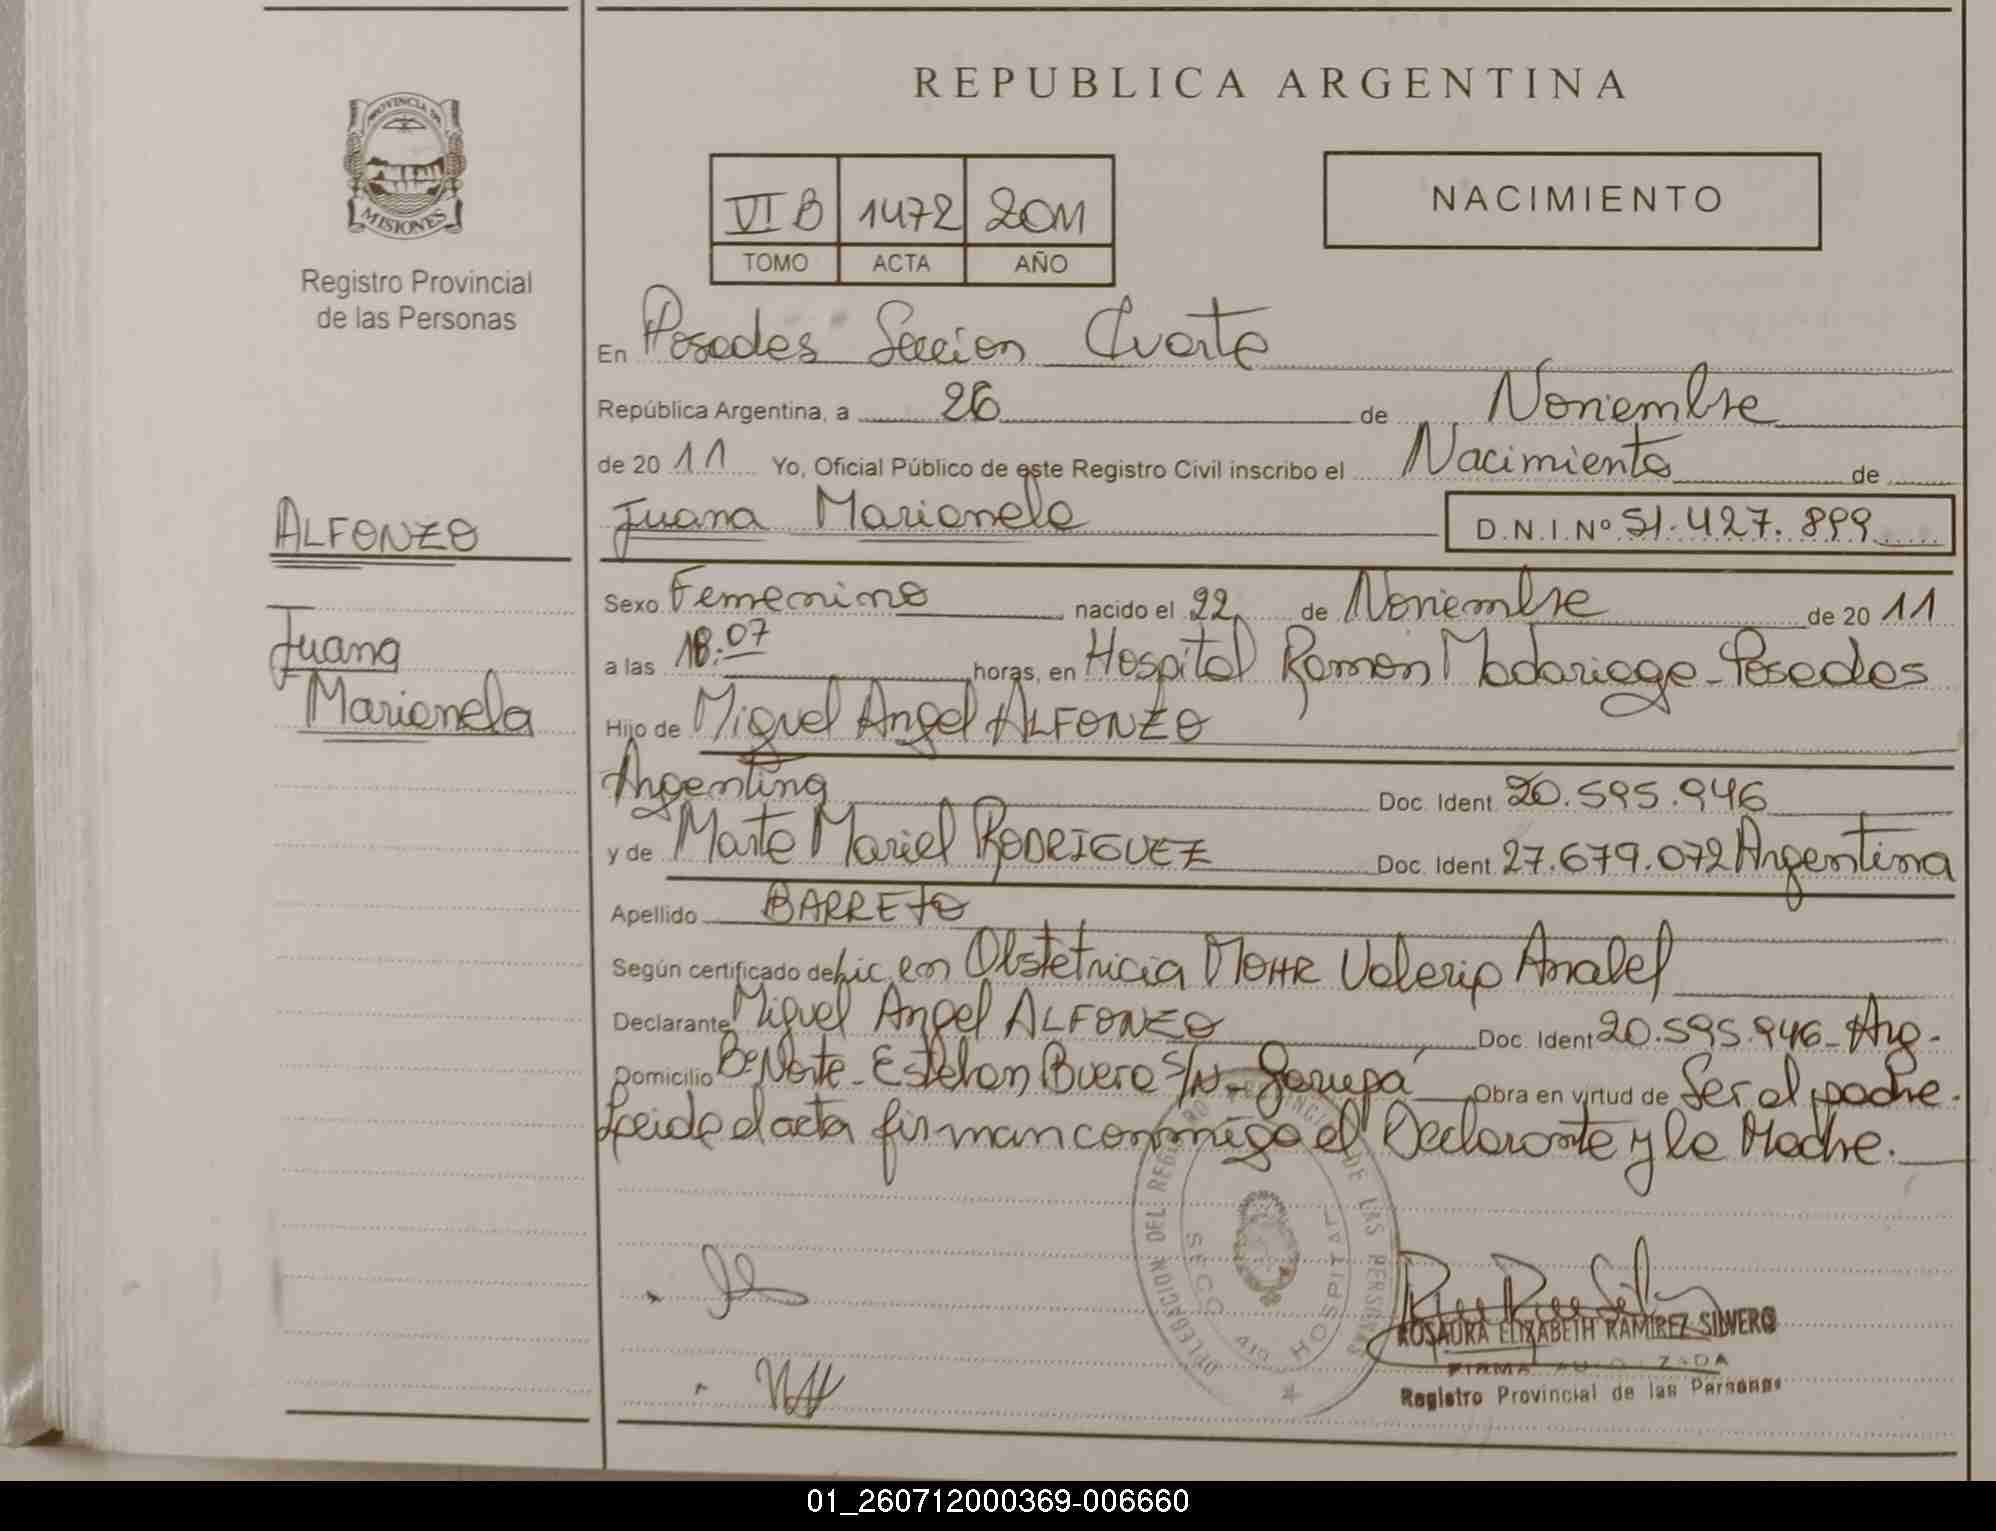 REPUBLICA ARGENTINA
PROVINCIA DE
MISIONES
Registro Provincial
de las Personas
VI B 1472 2011
TOMO ACTA AÑO
NACIMIENTO
En Posadas Seccion Cuarta
República Argentina, a 26 de Noviembre
de 20 11 Yo, Oficial Público de este Registro Civil inscribo el Nacimiento de
Juana Marianela D.N.I. Nº 51.427.899
ALFONZO
Juana
Marianela
Sexo Femenino nacido el 22 de Noviembre de 20 11
a las 18:07 horas, en Hospital Ramon Madariaga - Posadas
Hijo de Miguel Angel ALFONZO
Argentina Doc. Ident. 20.595.946
y de Marta Mariel RODRIGUEZ Doc. Ident. 27.679.072 Argentina
Apellido BARRETO
Según certificado de Lic. en Obstetricia MOHR Valeria Anabel
Declarante Miguel Angel ALFONZO Doc. Ident 20.595.946 - Arg.
Domicilio Bº Norte - Esteban Buera s/n - Garupá Obra en virtud de Ser el padre.
Leida el acta firman conmigo el Declarante y la Madre.
DELEGACION DEL REGISTRO PROVINCIAL DE LAS PERSONAS
SECC. 4ta HOSPITAL
ROSAURA ELIZABETH RAMÍREZ SILVERO
FIRMA AUTORIZADA
Registro Provincial de las Personas
01_260712000369-006660